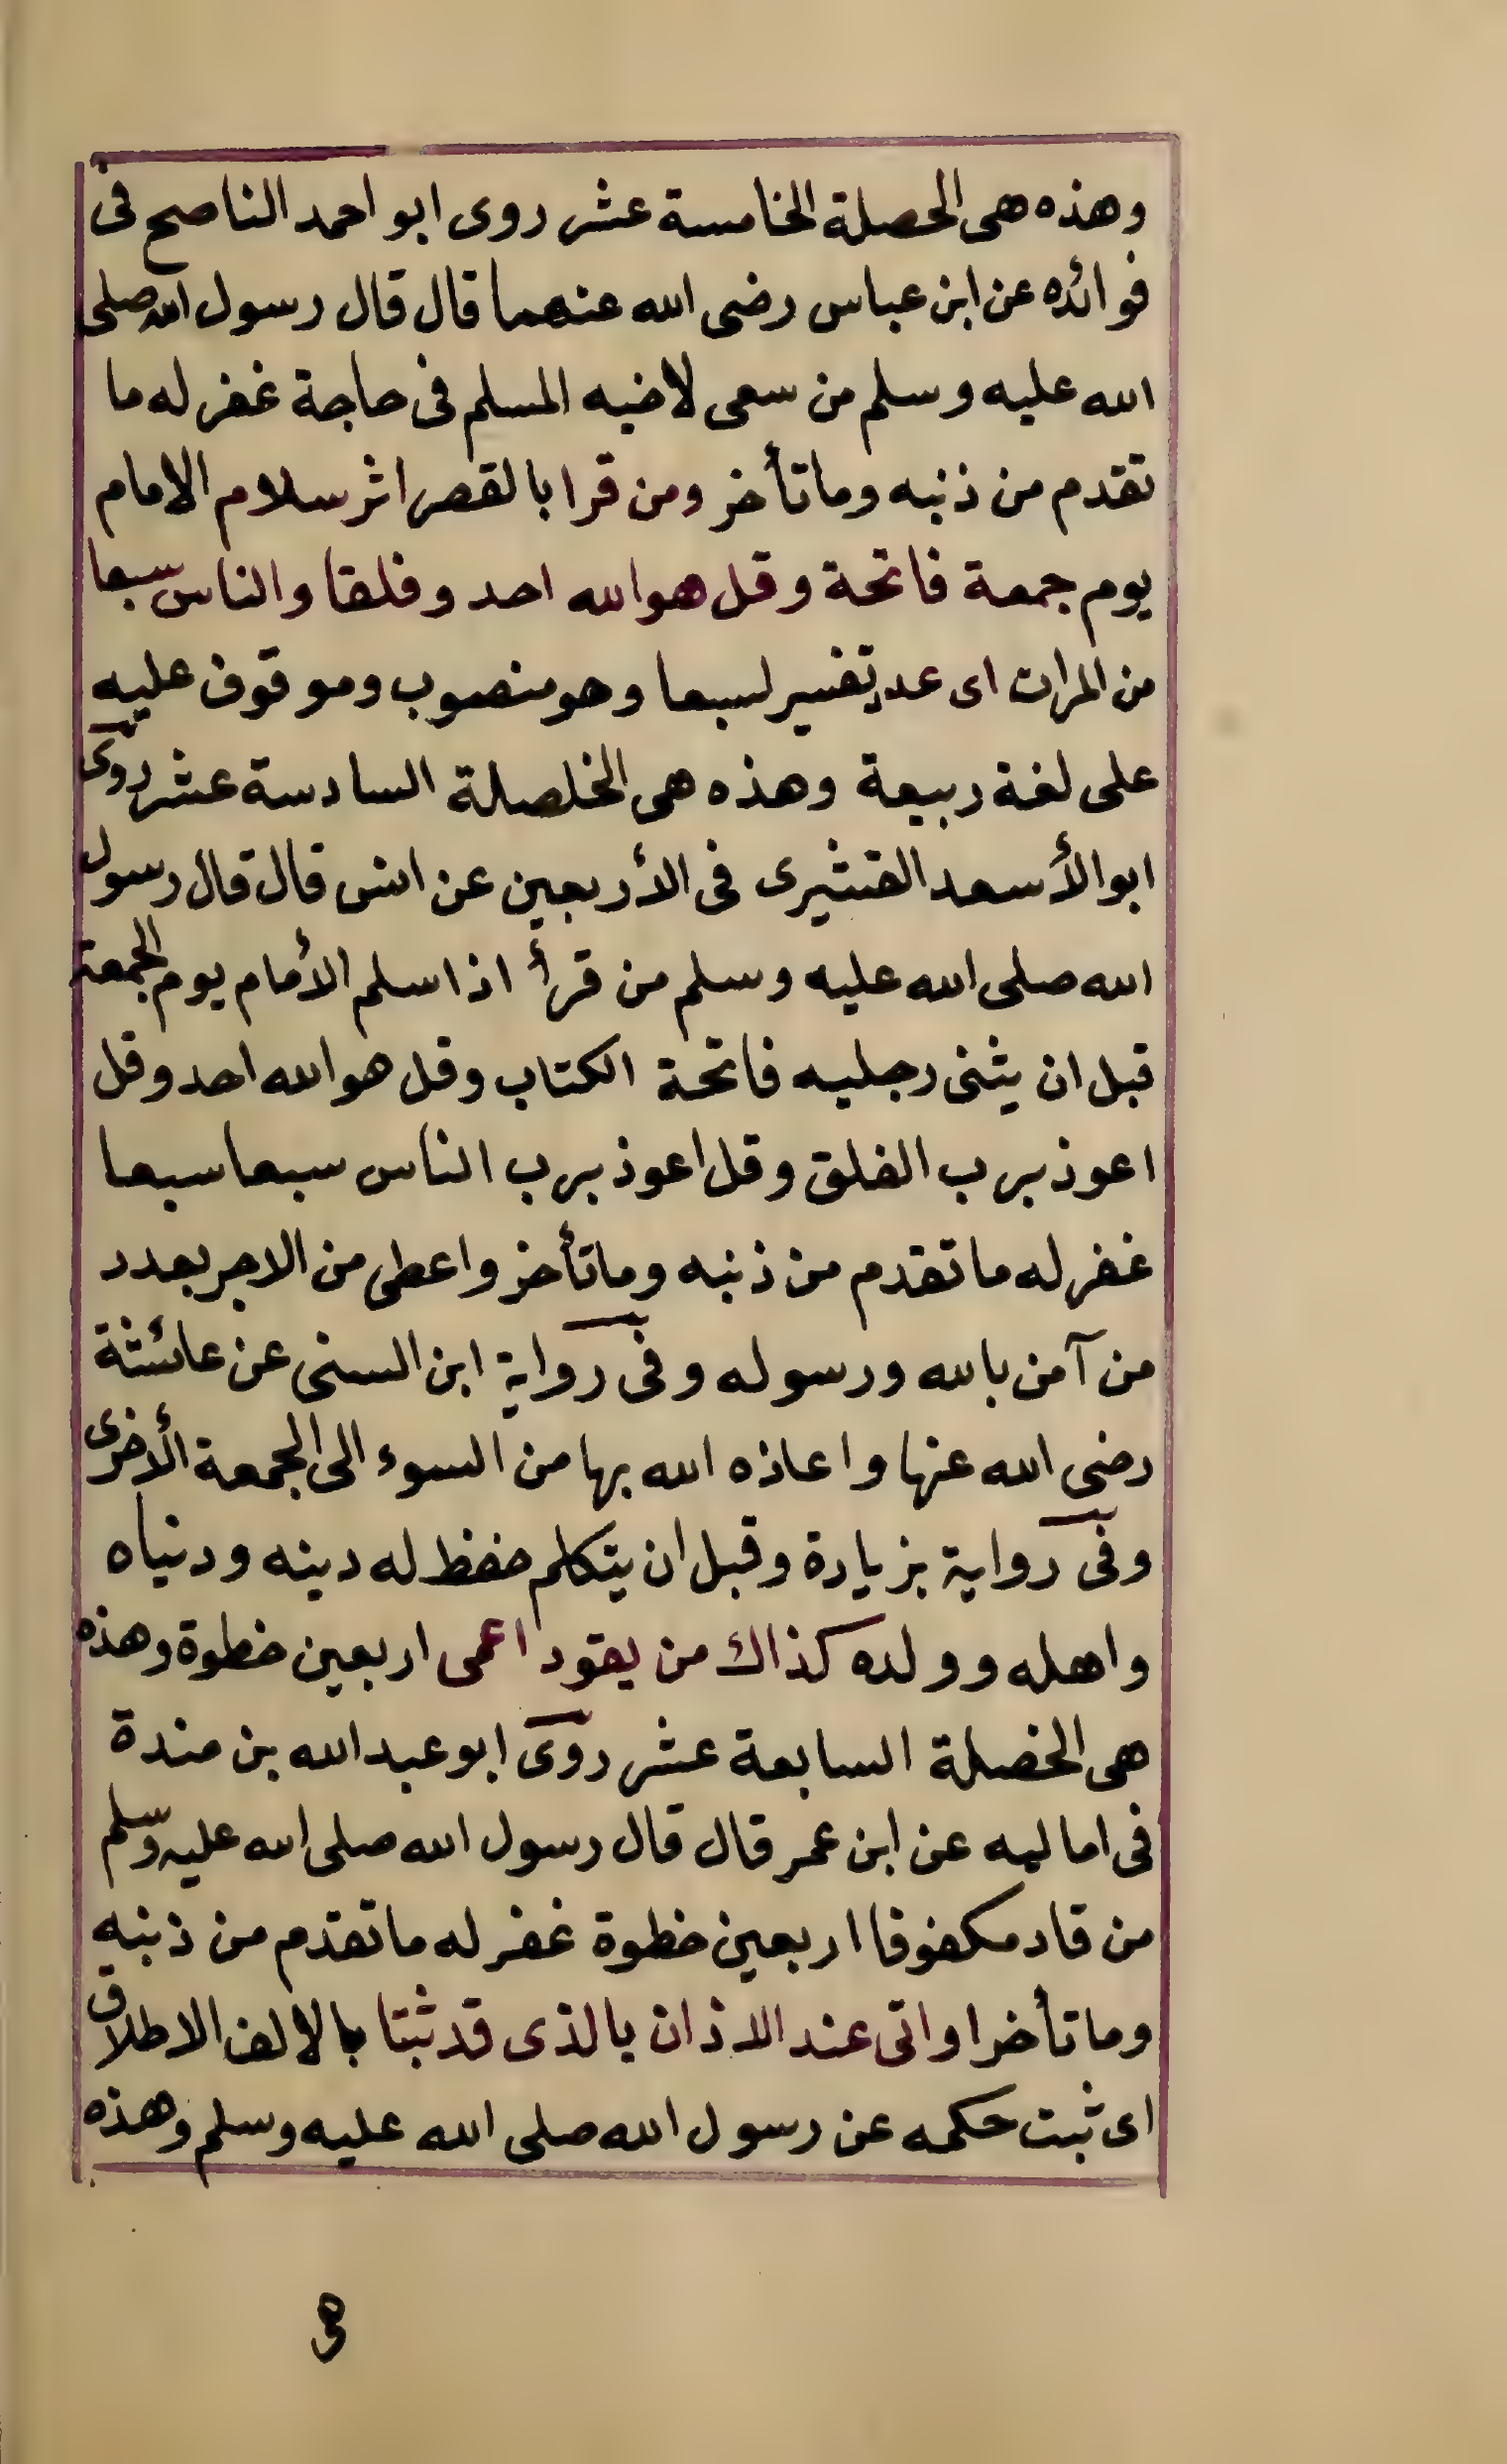 وهذه هى الحصلة الخامسة عشر روى ابو احمد الناصح فى
فوائده عن ابن عباس رضى الله عنهما قال قال رسول الله صلى
الله عليه وسلم من سعى لاخيه المسلم فى حاجة غفر له ما
تقدم من ذنبه وما تأخر ومن قرا بالقصر اثر سلام الامام
يوم جمعة فاتحة وقل هو الله احد وفلقا والناس سبعا
من المرات اى عد تفسير لسبعا وهو منصوب وموقوف عليه
على لغة ربيعة وهذه هى الخلصلة السادسة عشر روى
ابو الأسعد القشيرى فى الأربعين عن انس قال قال رسول
الله صلى الله عليه وسلم من قرأ اذا سلم الأمام يوم الجمعة
قبل ان يثنى رجليه فاتحة الكتاب وقل هو الله احد وقل
اعوذ برب الفلق وقل اعوذ برب الناس سبعا سبعا
غفر له ما تقدم من ذنبه وما تأخر واعطى من الاجر بعدد
من آمن بالله ورسوله وفى رواية ابن السنى عن عائشة
رضى الله عنها واعاذه الله بها من السوء الى الجمعة الأخرى
وفى رواية بزيادة وقبل ان يتكلم حفظ له دينه ودنياه
واهله وولده كذاك من يقود اعمى اربعين خطوة وهذه
هى الخصلة السابعة عشر روى ابو عبد الله بن مندة
فى اماليه عن ابن عمر قال قال رسول الله صلى الله عليه وسلم
من قاد مكفوفا اربعين خطوة غفر له ما تقدم من ذنبه
وما تأخر او اتى عند الاذان بالذى قد ثبتا بالالف الاطلاق
اى ثبت حكمه عن رسول الله صلى الله عليه وسلم وهذه
هى